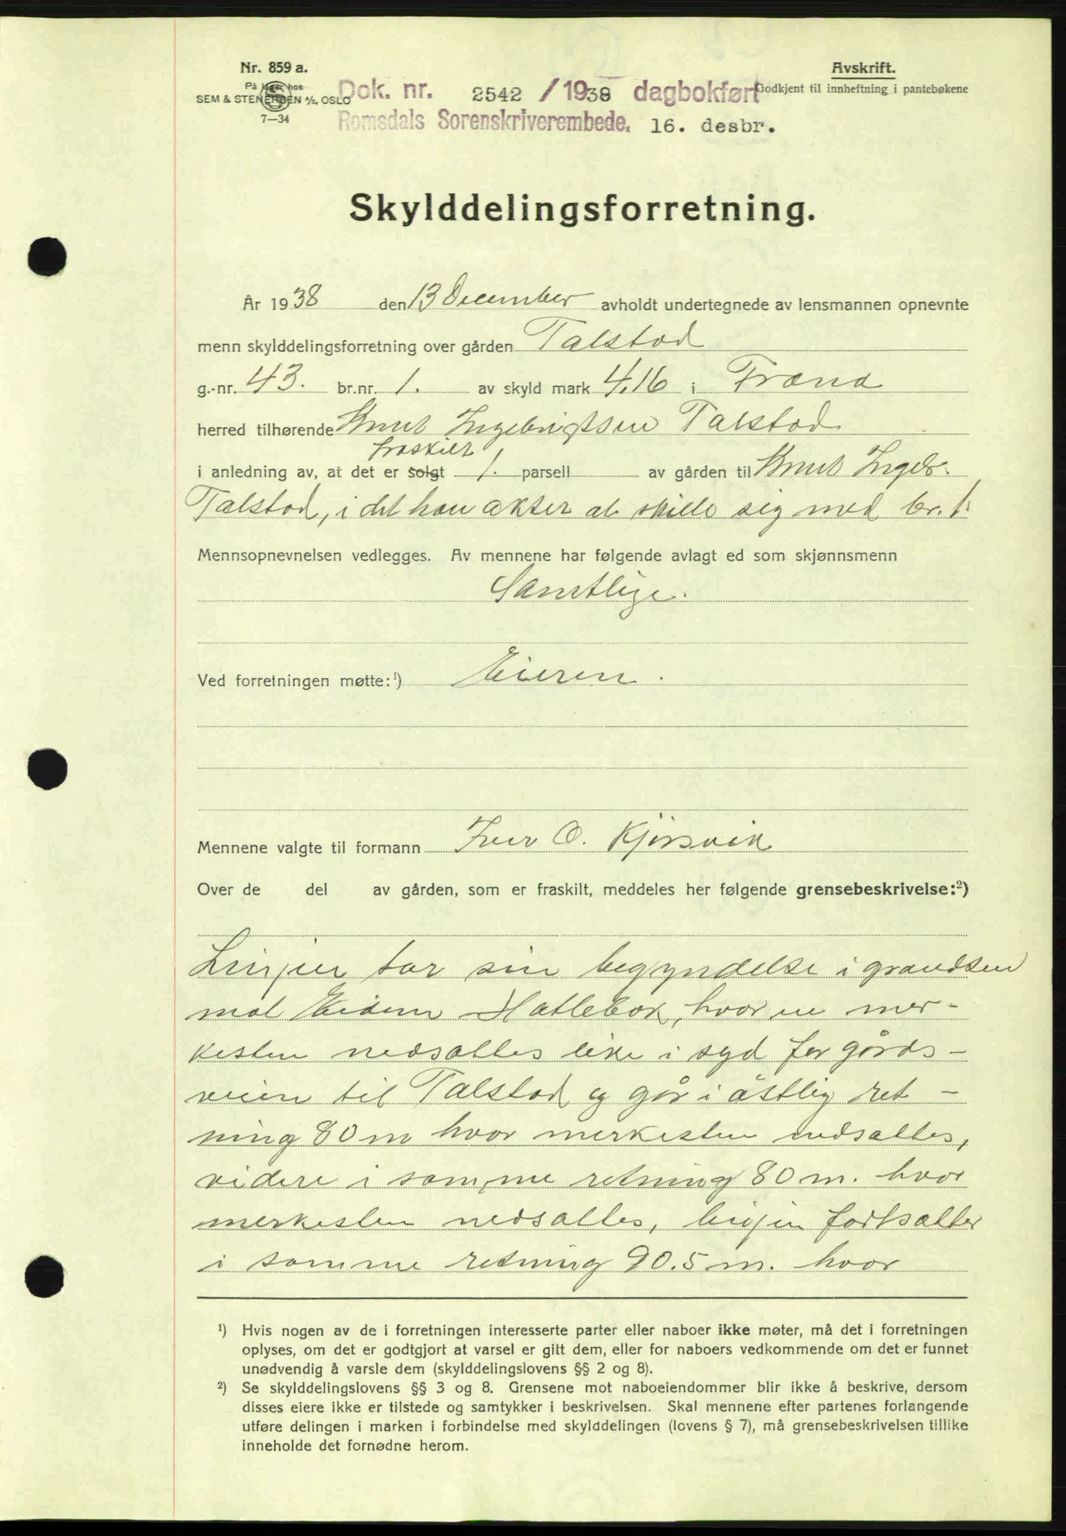 Nr. 859 a.
På lager hos
SEM & STENERSEN A/S, OSLO
7—34
Avskrift.
Godkjent til innheftning i pantebøkene
Dok. nr. 2542 / 1938 dagbokført
Romsdals Sorenskriverembede. 16. desbr.
Skylddelingsforretning.
År 1938 den 13 December avholdt undertegnede av lensmannen opnevnte
menn skylddelingsforretning over gården Talstad
g.-nr. 43. br.nr. 1. av skyld mark 4,16 i Fræna
herred tilhørende Knut Ingebrigtsen Talstad
fraskilt
i anledning av, at det er solgt 1. parsell av gården til Knut Ingebr.
Talstad, i det han akter at skille sig med br. 1.
Mennsopnevnelsen vedlegges. Av mennene har følgende avlagt ed som skjønnsmenn
Samtlige.
Ved forretningen møtte:¹) Eieren.
Mennene valgte til formann Iver O. Kjörsvik
Over de del av gården, som er fraskilt, meddeles her følgende grensebeskrivelse:²)
Linjen tar sin begyndelse i grændsen
mot Eidem Hatlebak, hvor en mer-
kesten nedsattes like i syd for gårds-
veien til Talstad og går i östlig ret-
ning 80 m hvor merkesten nedsattes,
videre i samme retning 80 m. hvor
merkesten nedsattes, linjen fortsætter
i samme retning 90.5 m. hvor
¹) Hvis nogen av de i forretningen interesserte parter eller naboer ikke møter, må det i forretningen
oplyses, om det er godtgjort at varsel er gitt dem, eller for naboers vedkommende om det er funnet
unødvendig å varsle dem (skylddelingslovens §§ 2 og 8).
²) Se skylddelingslovens §§ 3 og 8. Grensene mot naboeiendommer blir ikke å beskrive, dersom
disses eiere ikke er tilstede og samtykker i beskrivelsen. Skal mennene efter partenes forlangende
utføre delingen i marken i forbindelse med skylddelingen (lovens § 7), må grensebeskrivelsen tillike
inneholde det fornødne herom.